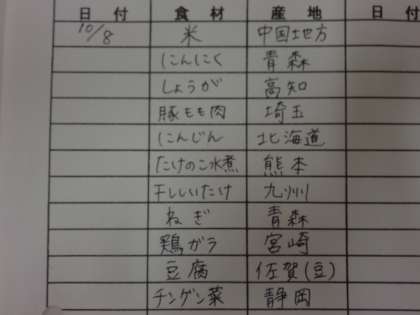 日付 食材 産地 日付
10/8 米 中国地方
にんにく 青森
しょうが 高知
豚もも肉 埼玉
にんじん 北海道
たけのこ水煮 熊本
干ししいたけ 九州
ねぎ 青森
鶏ガラ 宮崎
豆腐 佐賀(豆)
チンゲン菜 静岡